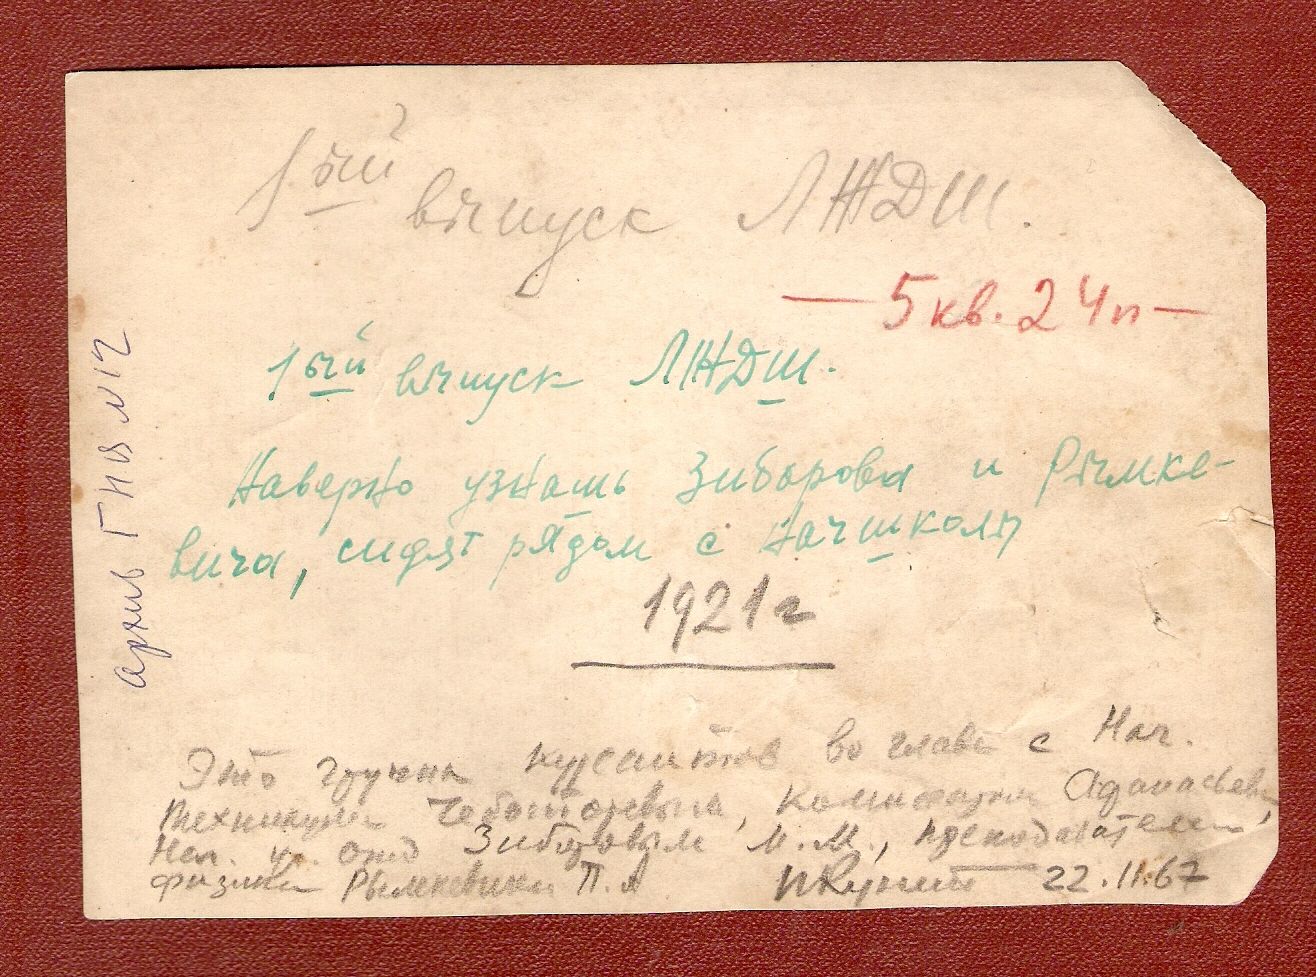 1ый выпуск ЛЖДШ.
— 5 кв. 24п —
1ый выпуск ЛЖДШ.
Наверно узнаешь Зиборова и Рымке-
вича, сидят рядом с начшколы
1921 г
Это группа курсантов во главе с Нач.
техникума Чеботаревым, комиссаром
Нач. уч. отд Зиборовым М.М., преподавателем
физики Рымкевичем П.А 22.11.67
архив ГНВ №12